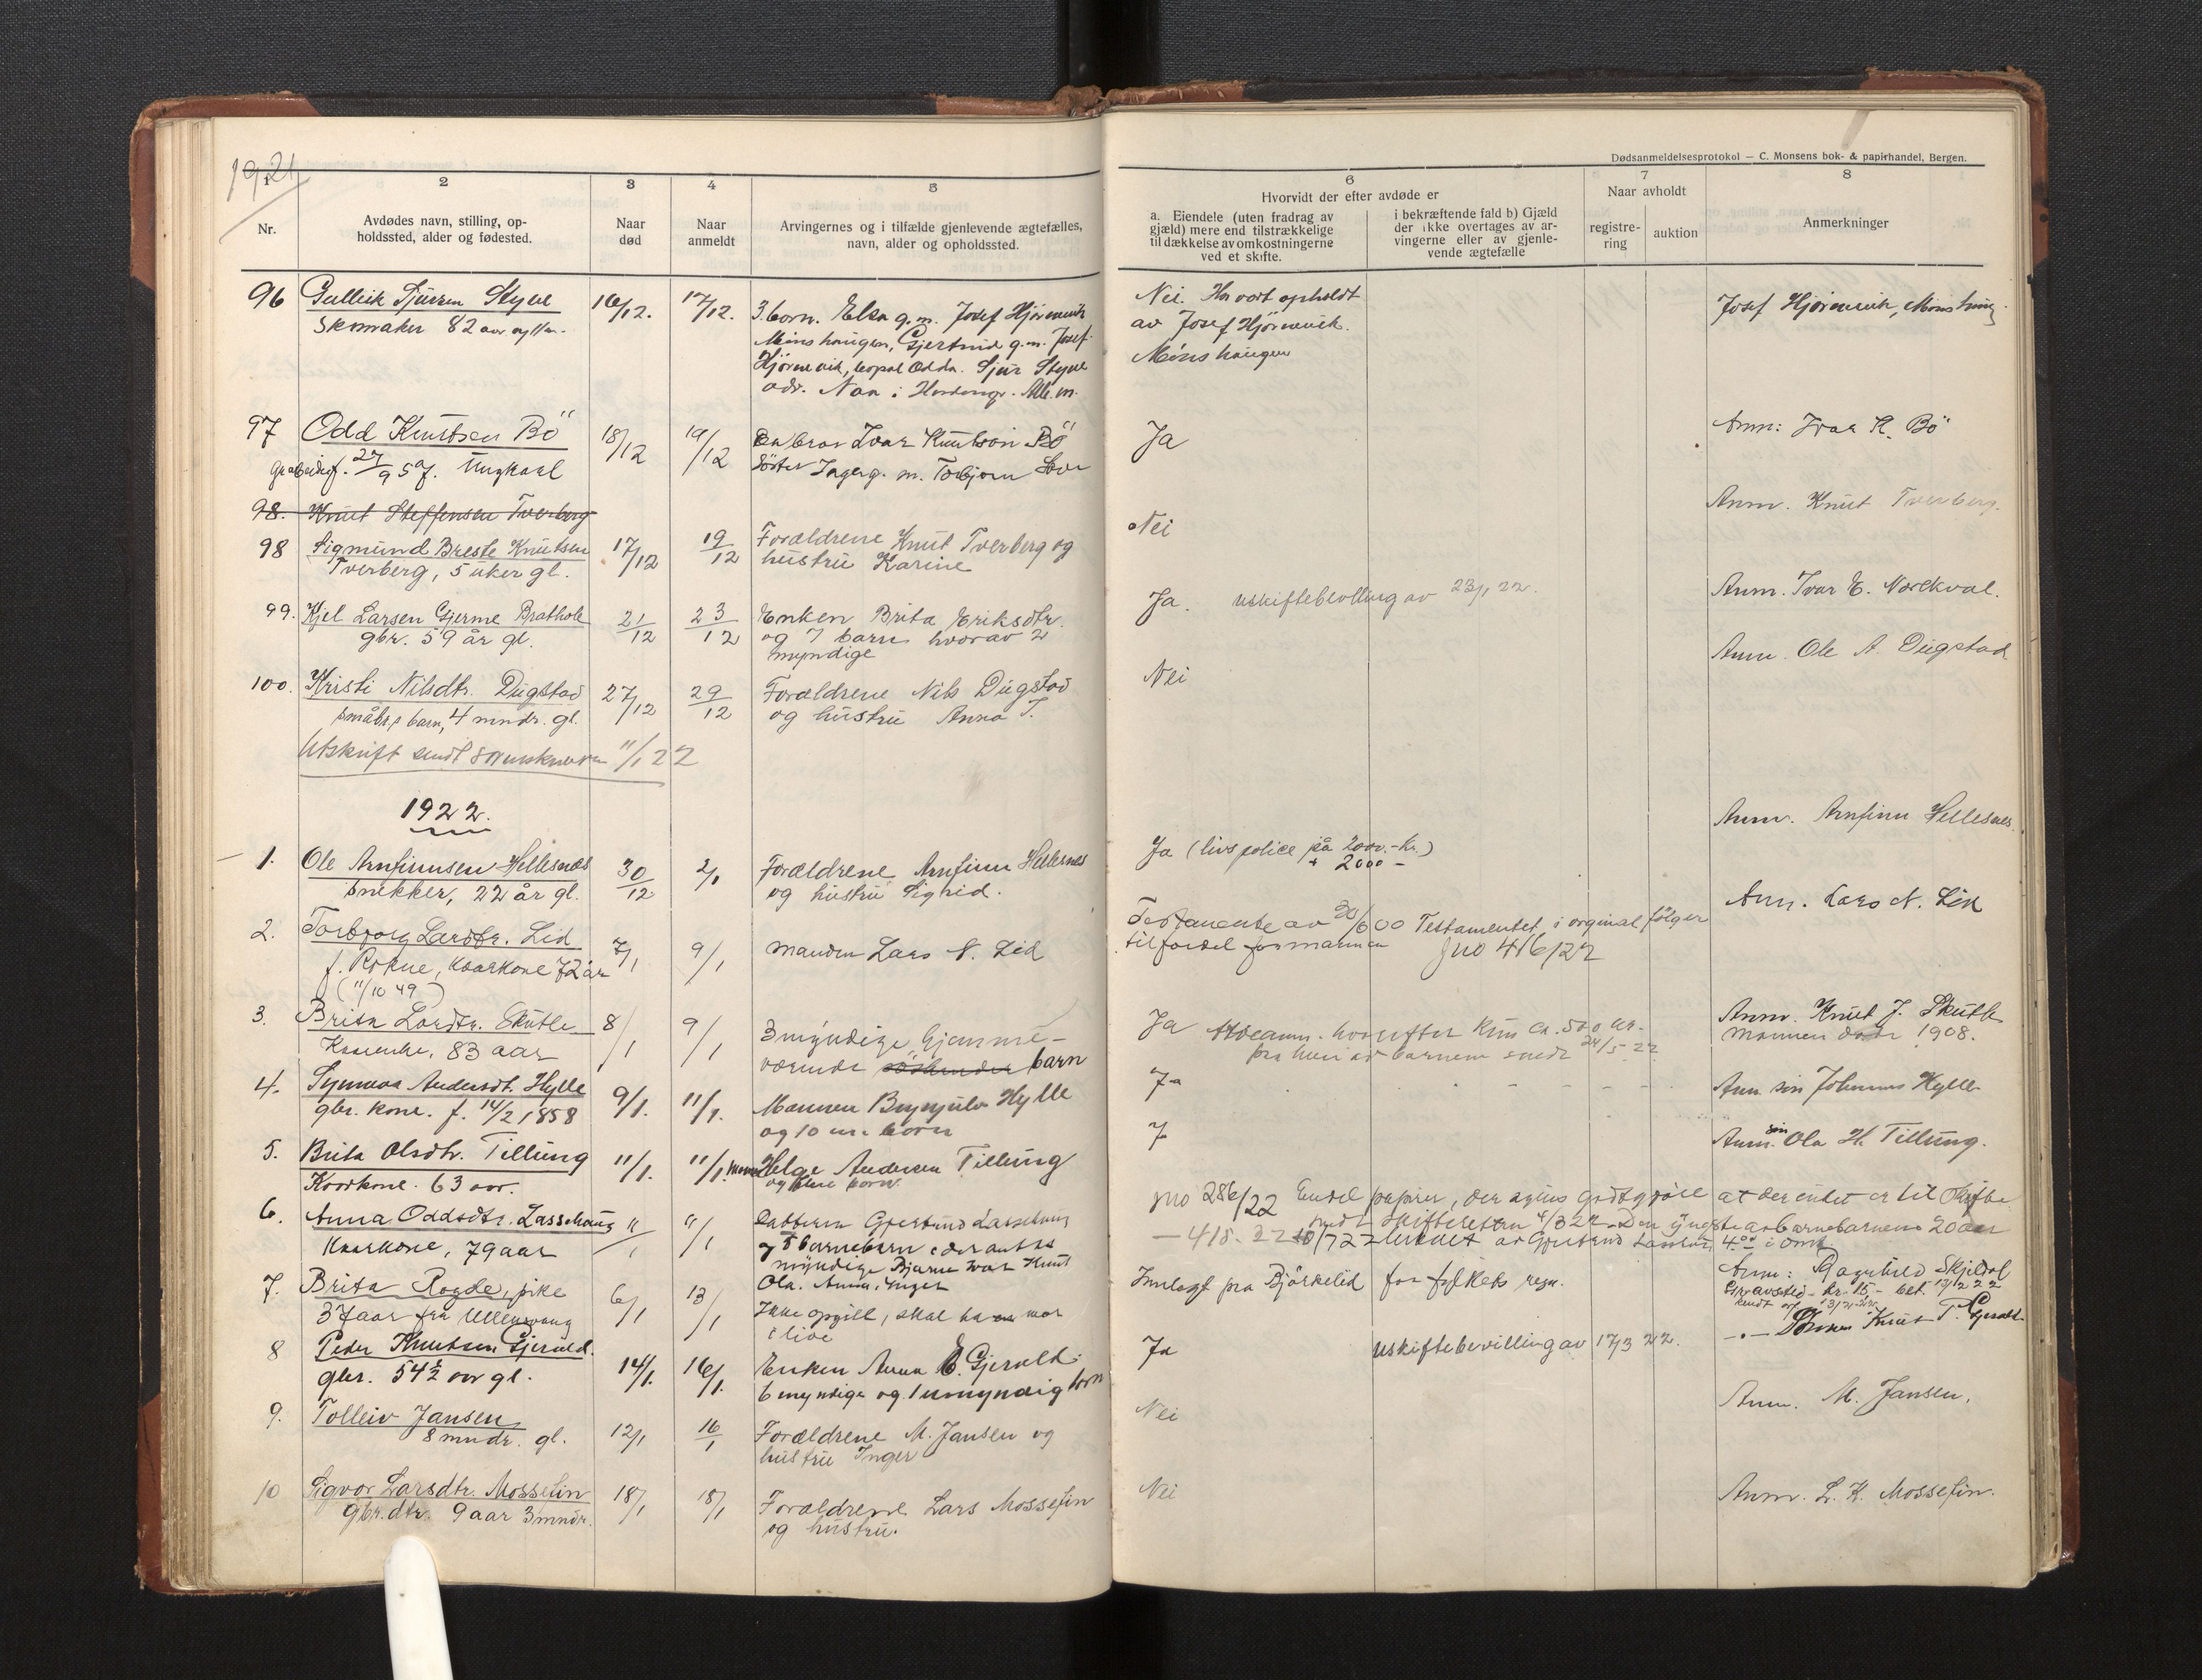 1921
Dødsanmeldelsesprotokol — C. Monsens bok- & papirhandel, Bergen.
1
2
3
4
5
6
7
8
Nr.
Avdødes navn, stilling, op-
holdssted, alder og fødested.
Naar
død
Naar
anmeldt
Arvingernes og i tilfælde gjenlevende ægtefælles,
navn, alder og opholdssted.
Hvorvidt der efter avdøde er
a. Eiendele (uten fradrag av
gjæld) mere end tilstrækkelige
til dækkelse av omkostningerne
ved et skifte.
i bekræftende fald b) Gjæld
der ikke overtages av ar-
vingerne eller av gjenle-
vende ægtefælle
Naar avholdt
registre-
ring
auktion
Anmerkninger
96 Gulleik Sjursen Styve 16/12. 17/12. 3 born. Elsa g.m. Josef Hjørnevik Nei. Har vort opholdt Josef Hjørnevik, Mønshaug
Skomaker 82 aar Mønshaugen, Gjertrud g.m. Josef av Josef Hjörnevik.
Hjørnevik, Odda. Sjur Styve Mønshaugen
adr. Naa i Hardanger. Alle m.
97 Odd Knutsen Bö 18/12 19/12 En bror Ivar Knutson Bö Ja Anm: Ivar K. Bö
f. 27/9 57. Ungkarl Söster Inger g. m. Torbjørn
98. Knut Steffensen Tverberg Anm. Knut Tverberg.
98 Sigmund Breste Knutsen 17/12 19/12 Forældrene Knut Tverberg og Nei
Tverberg, 5 uker gl. hustru Karine
99. Kjel Larsen Gjerme Brathole 21/12 23/12 Enken Brita Eriksdtr. Ja. uskiftebevilling av 23/1 22. Anm. Ivar E. Nordkval.
gbr. 59 år gl. og 7 barn hvorav 2
myndige
100. Kristi Nilsdtr. Dugstad 27/12 29/12 Forældrene Nils Dugstad Nei Anm. Ole A. Dugstad
småbr.s barn, 4 mndr. gl. og hustru Anna I.
Utskrift sendt sorenskriveren 11/1 22
1922.
1. Ole Arnfinnsen Hellesnes 30/12 2/1 Forældrene Arnfinn Hellesnes Ja (livspolice på 2000.- Kr.) Anm. Arnfinn Hellesnes.
snekker, 22 år gl. og hustru Sigrid. + 2000 -
2. Torbjorg Larsdtr. Lid 7/1 9/1 Manden Lars N. Lid Testamente av 30/6 00 Testamentet i orginal følger Anm. Lars N. Lid
f. Rokne, kaarkone 72 år til fordel for mannen Jno 416/22
(11/10 49)
3. Brita Larsdtr. Skutle 8/1 9/1 3 myndige Gjenne- Ja hvorefter kun ca. 500 kr. Anm. Knut J. Skutle
Kaarenke, 83 aar værende söskender barn fra av barnem sendt 24/5 22 Mannen døde 1908.
4. Synneva Andersdt. Hylle 9/1. 11/1. Mannen Brynjulv Hylle Ja Anm. sön Johannes Hylle
gbr. kone. f. 14/2 1858 og 10 m. born
5. Brita Olsdtr. Tillung 11/1. 11/1. Mannen Helge Andersen Tillung J Anm. sön Ola H. Tillung.
Kaarkone. 63 aar. og born.
6. Anna Oddsdtr. Lassehaug 11/1 11/1 Datteren Gjertrud Lassehaug Jno 286/22 Endel papirer, der synes godtgjöre at der intet er til Skifte
Kaarkone, 79 aar og 5 barnebarn sendt skifteretten 4/3 22. Den yngste av barnebarnene 20 aar
myndige Bjarne Ivar Knut — 418. 22 av Gjertrud Lassehaug
Ola. Anna. Inger
7. Brita Rogde, pike 6/1 13/1 Ikke opgitt, skal ha mor Innlagt fra Björkelid for fylkets regn. Anm: Ragnhild Skjeldal
37 aar fra Ullensvang i live
8 Peder Knutsen Gjerald. 14/1. 16/1. Enken Anna E. Gjerald. Ja uskiftebevilling av 17/3 22. Knut P. Gjerald.
gbr. 54½ aar gl. 6 myndige og 1 umyndig born
9. Tolleiv Jansen 12/1 16/1 Forældrene M. Jansen og Nei Anm. M. Jansen.
8 mndr. gl. hustru Inger
10 Sigvor Larsdtr. Mossefin 18/1 18/1 Forældrene Lars Mossefin Nei Anm. L. K. Mossefin.
Gbr. dtr. 9 aar 3 mndr. og hustru.